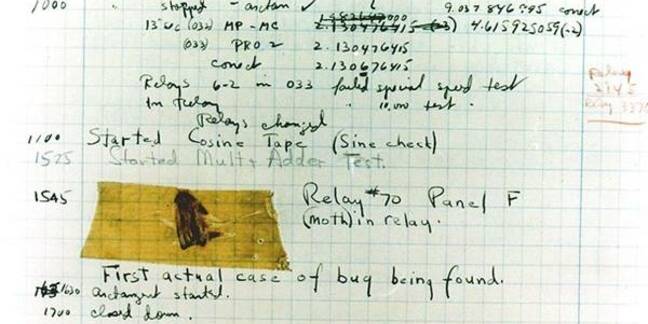 1000 " stopped - arctan ✓ 9.037 846 995 correct
13'uc (032) MP - MC 2.130476415 4.615925059(-2)
(033) PRO 2 2.130476415
correct 2.130676415
Relays 6-2 in 033 failed special speed test
In Relay " 10.000 test.
Relays changed
Relay
1100 Started Cosine Tape (Sine check)
1525 Started Mult + Adder Test.
1545 Relay #70 Panel F
(moth) in relay.
First actual case of bug being found.
1630 arctangent started.
1700 closed down.